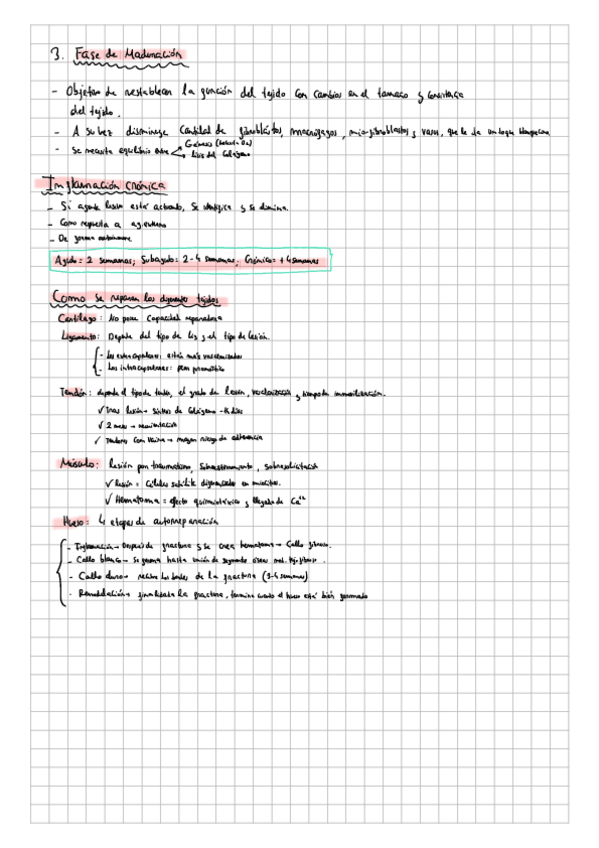 3. Fase de Maduración
- Objetivo de restablecer la función del tejido con cambios en el tamaño y consistencia
del tejido.
- A su vez disminuye cantidad de fibroblastos, macrófagos, miofibroblastos y vasos, que le da un toque blanquecino
- Se necesita equilibrio entre Génesis
Lisis del Colágeno
Inflamación Crónica
- Si agente lesión está activado, se
y se elimina.
- Como repuesta a ag. externo
- De forma autoinmune.
Agudo = 2 semanas; Subagudo = 2-4 semanas; Crónico = +4 semanas
Como se reparan los diferentes tejidos
Cartílago: No posee capacidad reparadora
Ligamento: Depende del tipo de lig y el tipo de lesión.
- Los extracapsulares: están más vascularizados
- Los intracapsulares: peor pronóstico
Tendón: depende el tipo de tendón, el grado de lesión, vascularización y tiempo de inmovilización.
✓ Tras lesión → síntesis de Colágeno
días
✓ 2 meses →
✓ Tendones con vaina → mayor riesgo de adherencia
Músculo: Lesión por traumatismo, Sobreestiramiento, sobresolicitación
✓ Lesión = Células satélite
en miocitos.
✓ Hematoma = efecto quimiotáctico y llegada de Ca²⁺
Hueso: 4 etapas de autorreparación
- Inflamación → Después de fractura y se crea hematoma → Callo fibroso.
- Callo blando → Se forma hasta unión de segmentos óseos
tej. fibroso.
- Callo duro →
los bordes de la fractura (3-4 semanas)
- Remodelación →
la fractura, termina cuando el hueso está bien formado